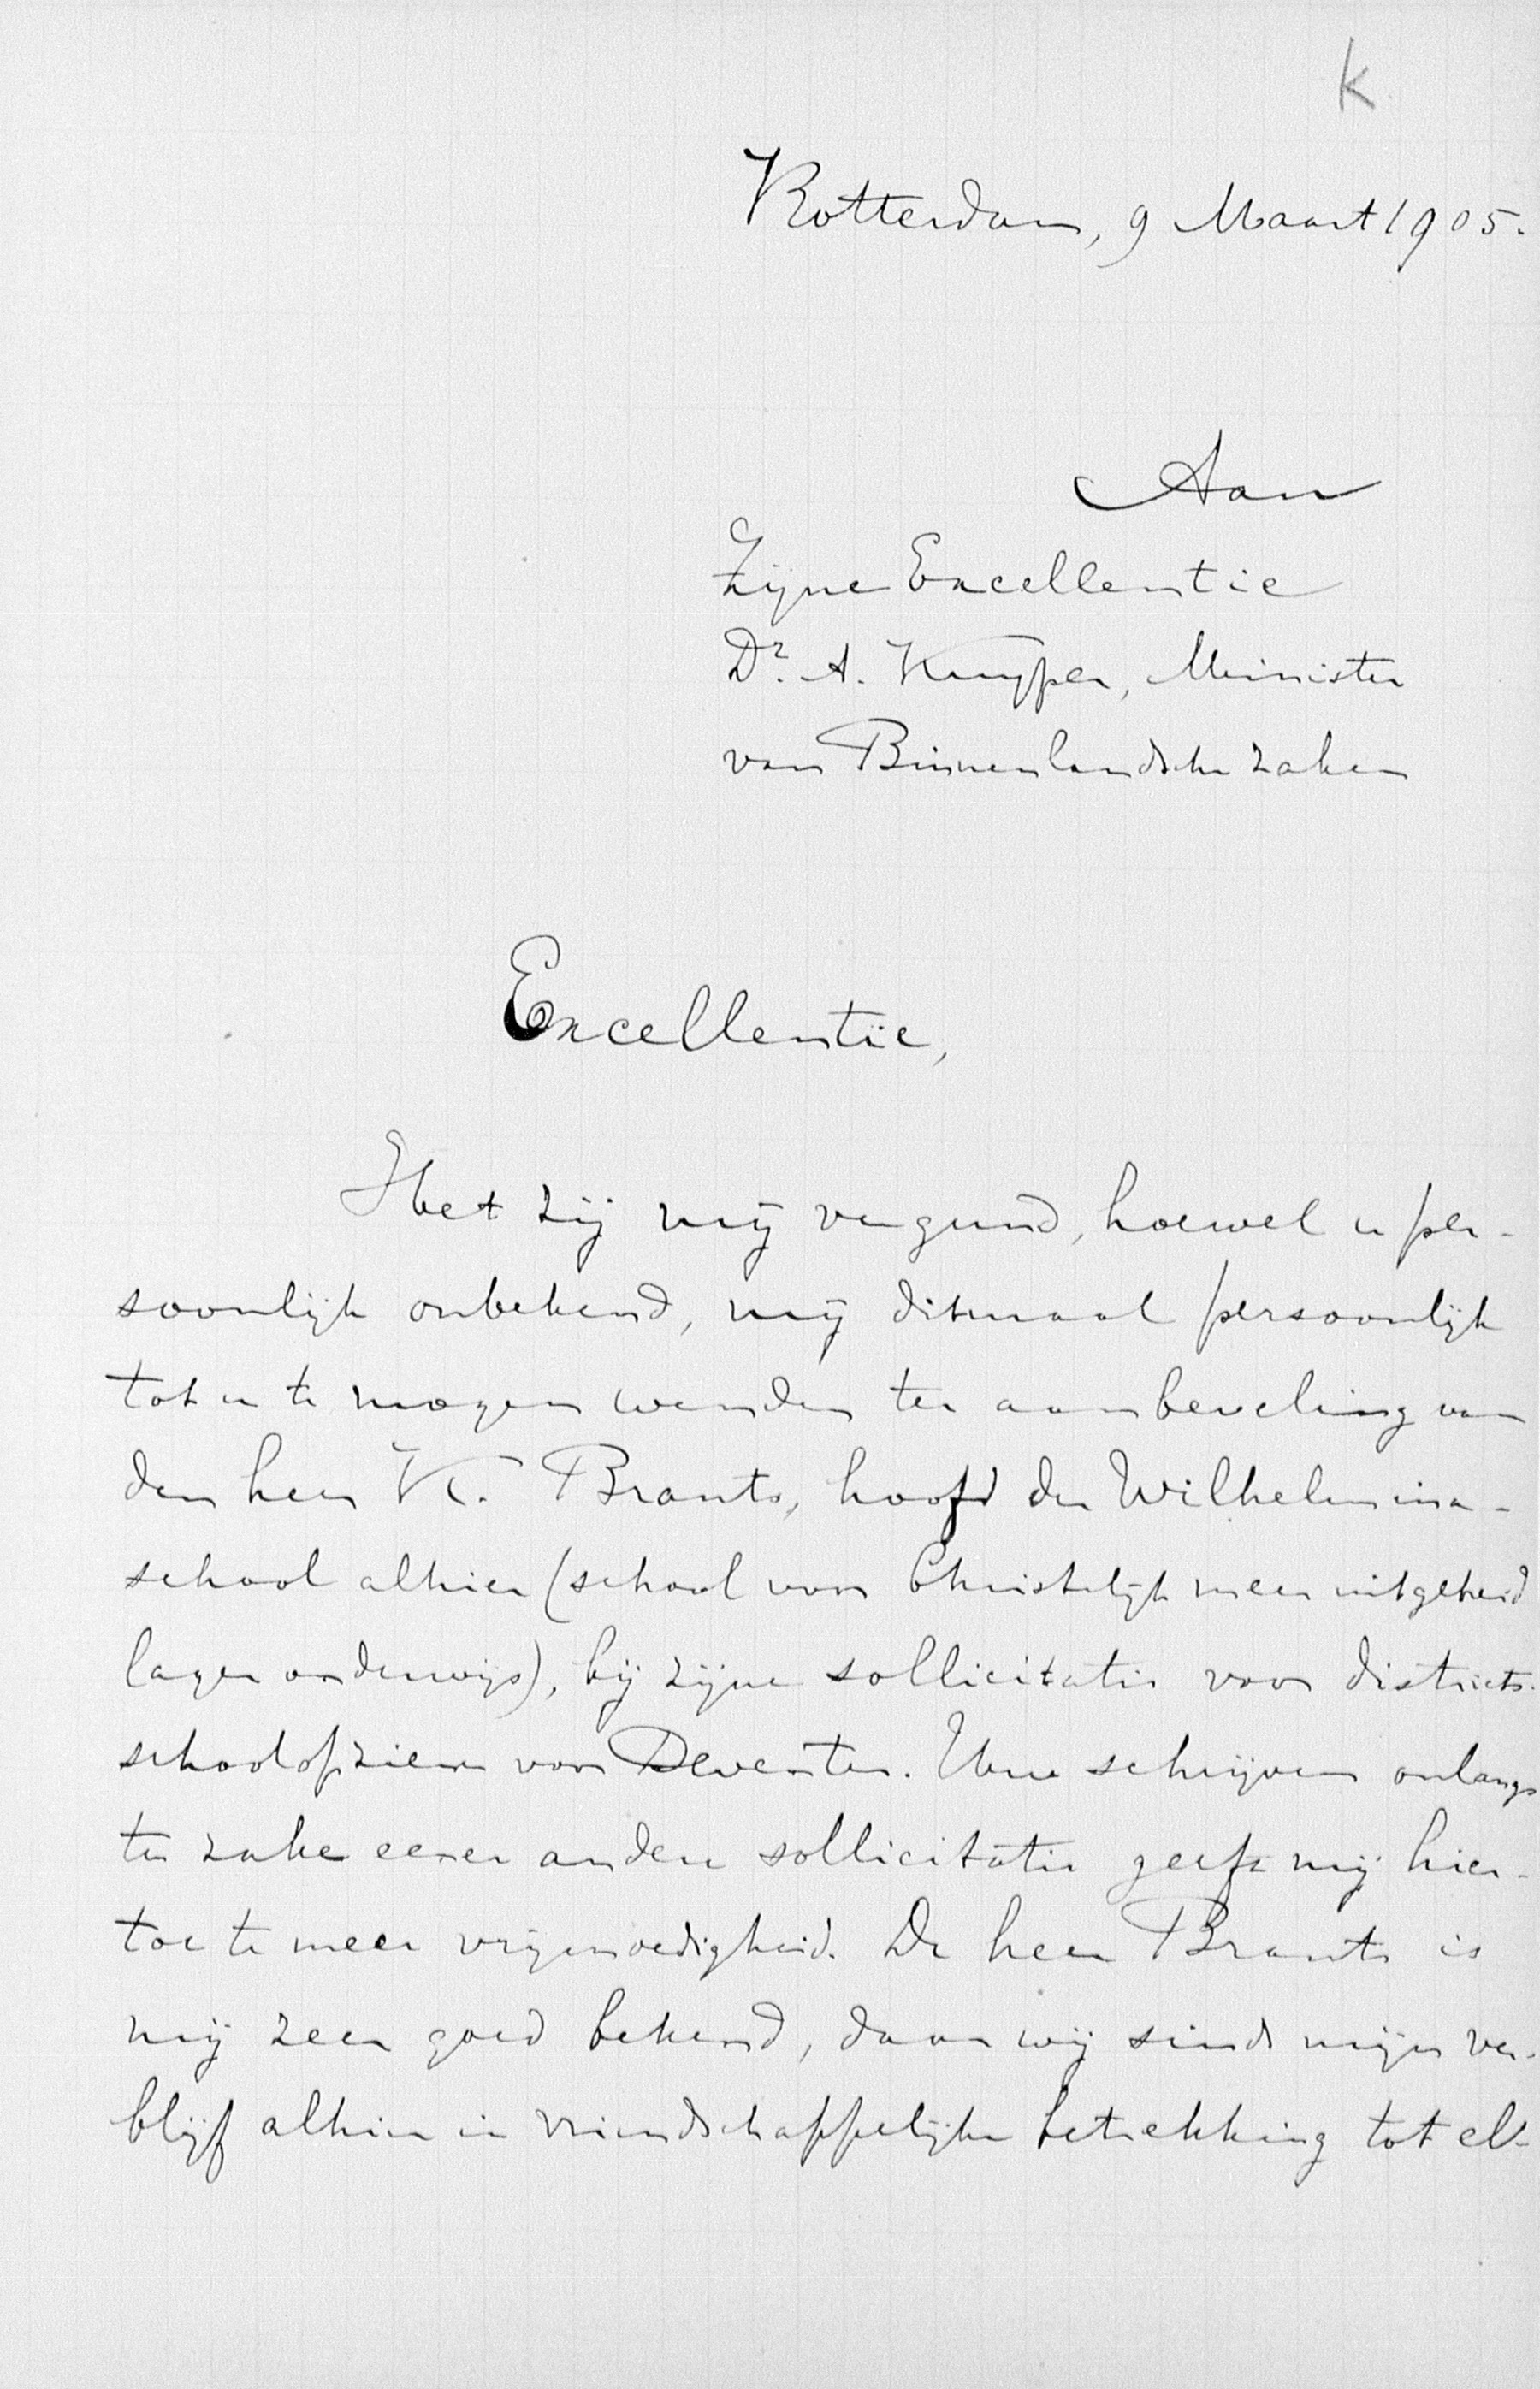 K
Rotterdam, 9 Maart 1905.
Aan
Zijne Excellentie
Dr. A. Kuyper, Minister
van Binnenlandsche zaken
Excellentie,
Het zij mij vergund, hoewel u per-
soonlijk onbekend, mij ditmaal persoonlijk
tot u te mogen wenden ter aanbeveling van
den heer K. Brants, hoofd der Wilhelmina-
school alhier (school voor Christelijk meer uitgebreid
lager onderwijs), bij zijne sollicitatie voor districts-
schoolopziener voor Deventer. Uw schrijven onlangs
ter zake eener andere sollicitatie geeft mij hier-
toe te meer vrijmoedigheid. De heer Brants is
mij zeer goed bekend, daar wij sinds mijn ver-
blijf alhier in vriendschappelijke betrekking tot el-